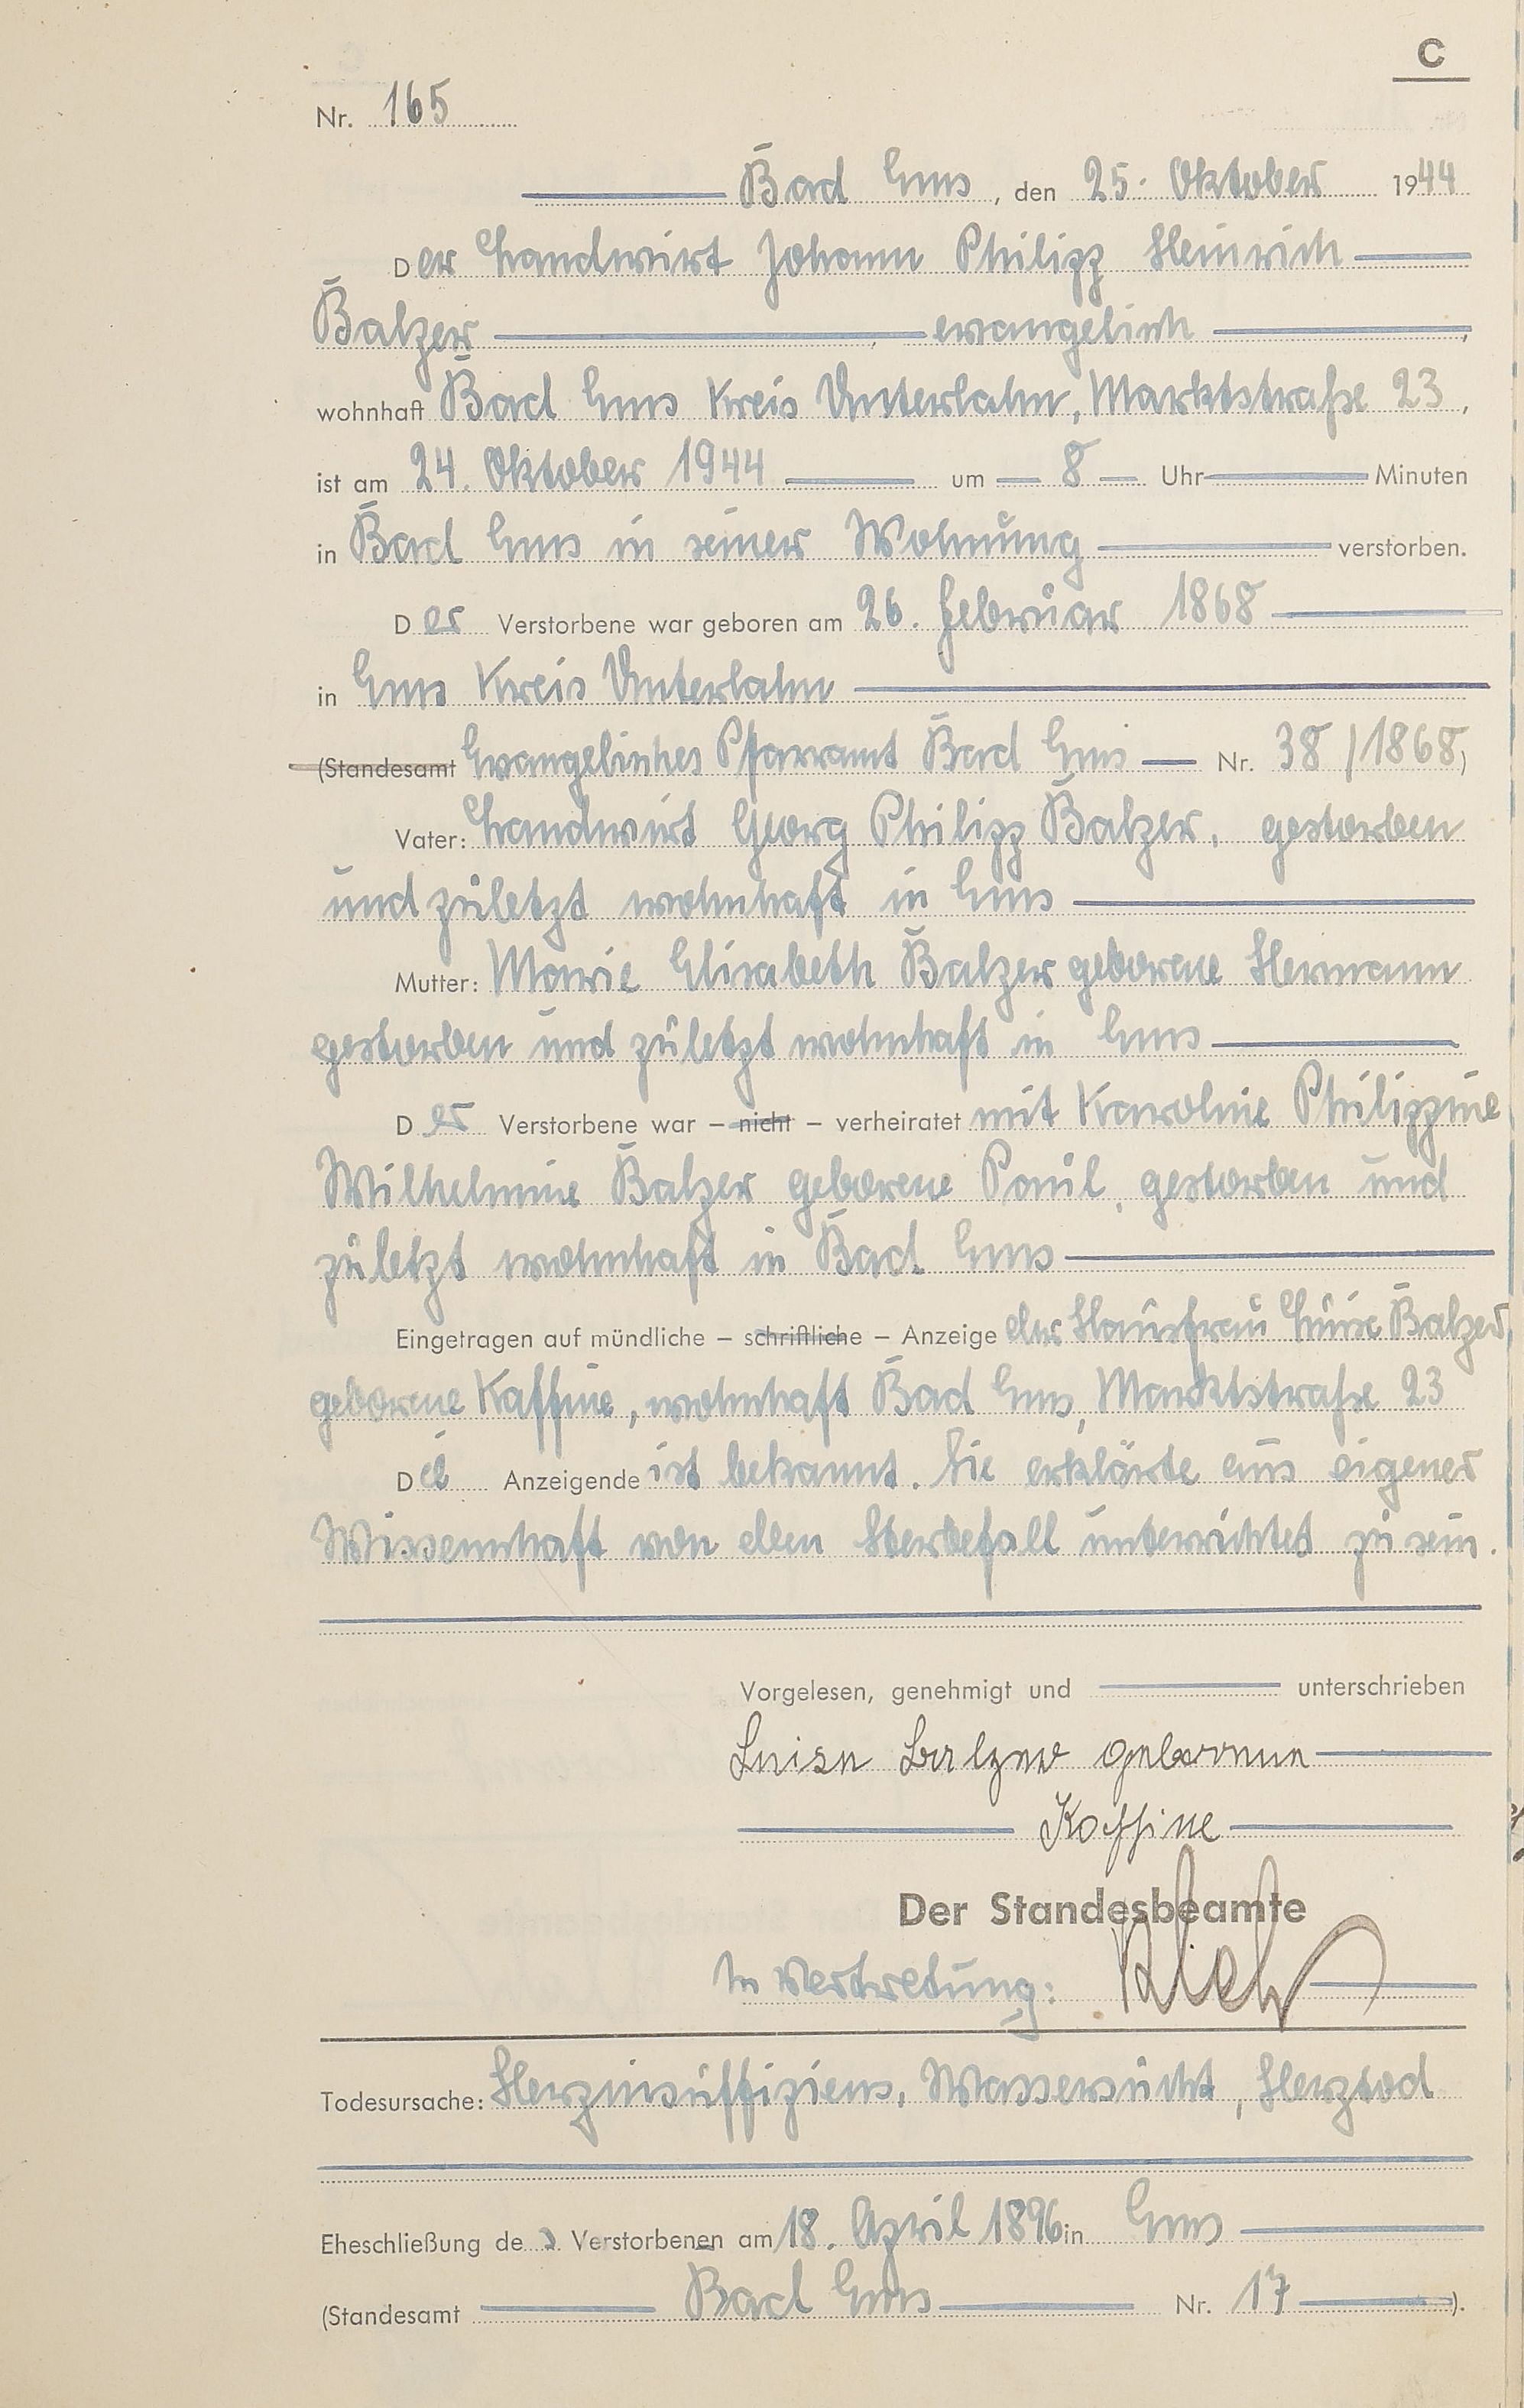 C
Nr. 165
Bad Ems, den 25. Oktober 1944
Der Landwirt Johann Philipp Heinrich
Balzer evangelisch,
wohnhaft Bad Ems Kreis Unterlahn, Marktstraße 23,
ist am 24. Oktober 1944 um 8 Uhr Minuten
in Bad Ems in seiner Wohnung verstorben.
Der Verstorbene war geboren am 26. Februar 1868
in Ems Kreis Unterlahn
(Standesamt Evangelisches Pfarramt Bad Ems Nr. 38/1868)
Vater: Landwirt Georg Philipp Balzer, gestorben
und zuletzt wohnhaft in Ems
Mutter: Marie Elisabeth Balzer geborene Hermann
gestorben und zuletzt wohnhaft in Ems
Der Verstorbene war – nicht – verheiratet mit Karoline Philippine
Wilhelmine Balzer geborene Paul, gestorben und
zuletzt wohnhaft in Bad Ems
Eingetragen auf mündliche – schriftliche – Anzeige der Hausfrau Luise Balzer
geborene Kaffine, wohnhaft Bad Ems, Marktstraße 23
Die Anzeigende ist bekannt. Sie erklärte aus eigener
Wissenschaft von dem Sterbefall unterrichtet zu sein.
Vorgelesen, genehmigt und unterschrieben
Luise Balzer geborene
Kaffine
Der Standesbeamte
In Vertretung:
Todesursache: Herzinsuffiziens, Wassersucht, Herztod
Eheschließung des Verstorbenen am 18. April 1896 in Ems
(Standesamt Bad Ems Nr. 17).